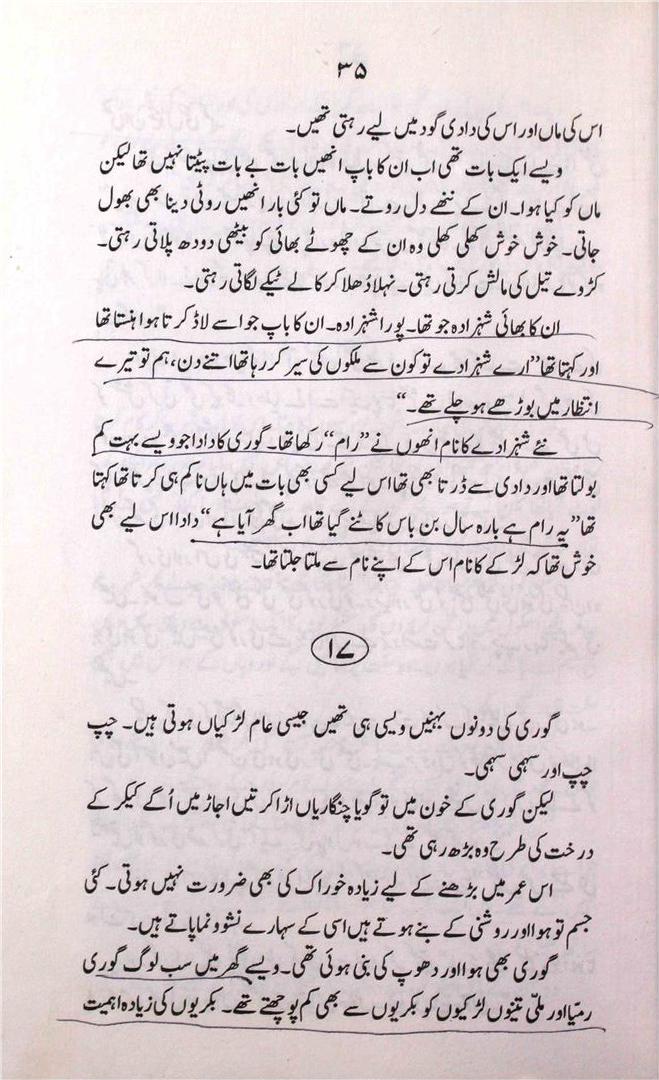 ۳۵
اس کی ماں اور اس کی دادی گود میں لیے رہتی تھیں۔
ویسے ایک بات تھی اب ان کا باپ انھیں بات بے بات پیٹتا نہیں تھا لیکن
ماں کو کیا ہوا۔ ان کے ننھے دل روتے۔ ماں تو کئی بار انھیں روٹی دینا بھی بھول
جاتی۔ خوش خوش کھلی کھلی وہ ان کے چھوٹے بھائی کو بیٹھی دودھ پلاتی رہتی۔
کڑوے تیل کی مالش کرتی رہتی۔ نہلا دُھلا کر کالے ٹیکے لگاتی رہتی۔
ان کا بھائی شہزادہ جو تھا۔ پورا شہزادہ۔ ان کا باپ جو اسے لاڈ کرتا ہوا ہنستا تھا
اور کہتا تھا ”ارے شہزادے تو کون سے ملکوں کی سیر کر رہا تھا اتنے دن، ہم تو تیرے
انتظار میں بوڑھے ہو چلے تھے۔“
نئے شہزادے کا نام انھوں نے ”رام“ رکھا تھا۔ گوری کا دادا جو ویسے بہت کم
بولتا تھا اور دادی سے ڈرتا بھی تھا اس لیے کسی بھی بات میں ہاں نا کم ہی کرتا تھا کہتا
تھا ”یہ رام ہے بارہ سال بن باس کاٹنے گیا تھا اب گھر آیا ہے“ دادا اس لیے بھی
خوش تھا کہ لڑکے کا نام اس کے اپنے نام سے ملتا جلتا تھا۔
۱۷
گوری کی دونوں بہنیں ویسی ہی تھیں جیسی عام لڑکیاں ہوتی ہیں۔ چپ
چپ اور سہمی سہمی۔
لیکن گوری کے خون میں تو گویا چنگاریاں اڑا کرتیں اجاڑ میں اُگے کیکر کے
درخت کی طرح وہ بڑھ رہی تھی۔
اس عمر میں بڑھنے کے لیے زیادہ خوراک کی بھی ضرورت نہیں ہوتی۔ کئی
جسم تو ہوا اور روشنی کے بنے ہوتے ہیں اسی کے سہارے نشوونما پاتے ہیں۔
گوری بھی ہوا اور دھوپ کی بنی ہوئی تھی۔ ویسے گھر میں سب لوگ گوری
رمیّا اور ملّی تینوں لڑکیوں کو بکریوں سے بھی کم پوچھتے تھے۔ بکریوں کی زیادہ اہمیت